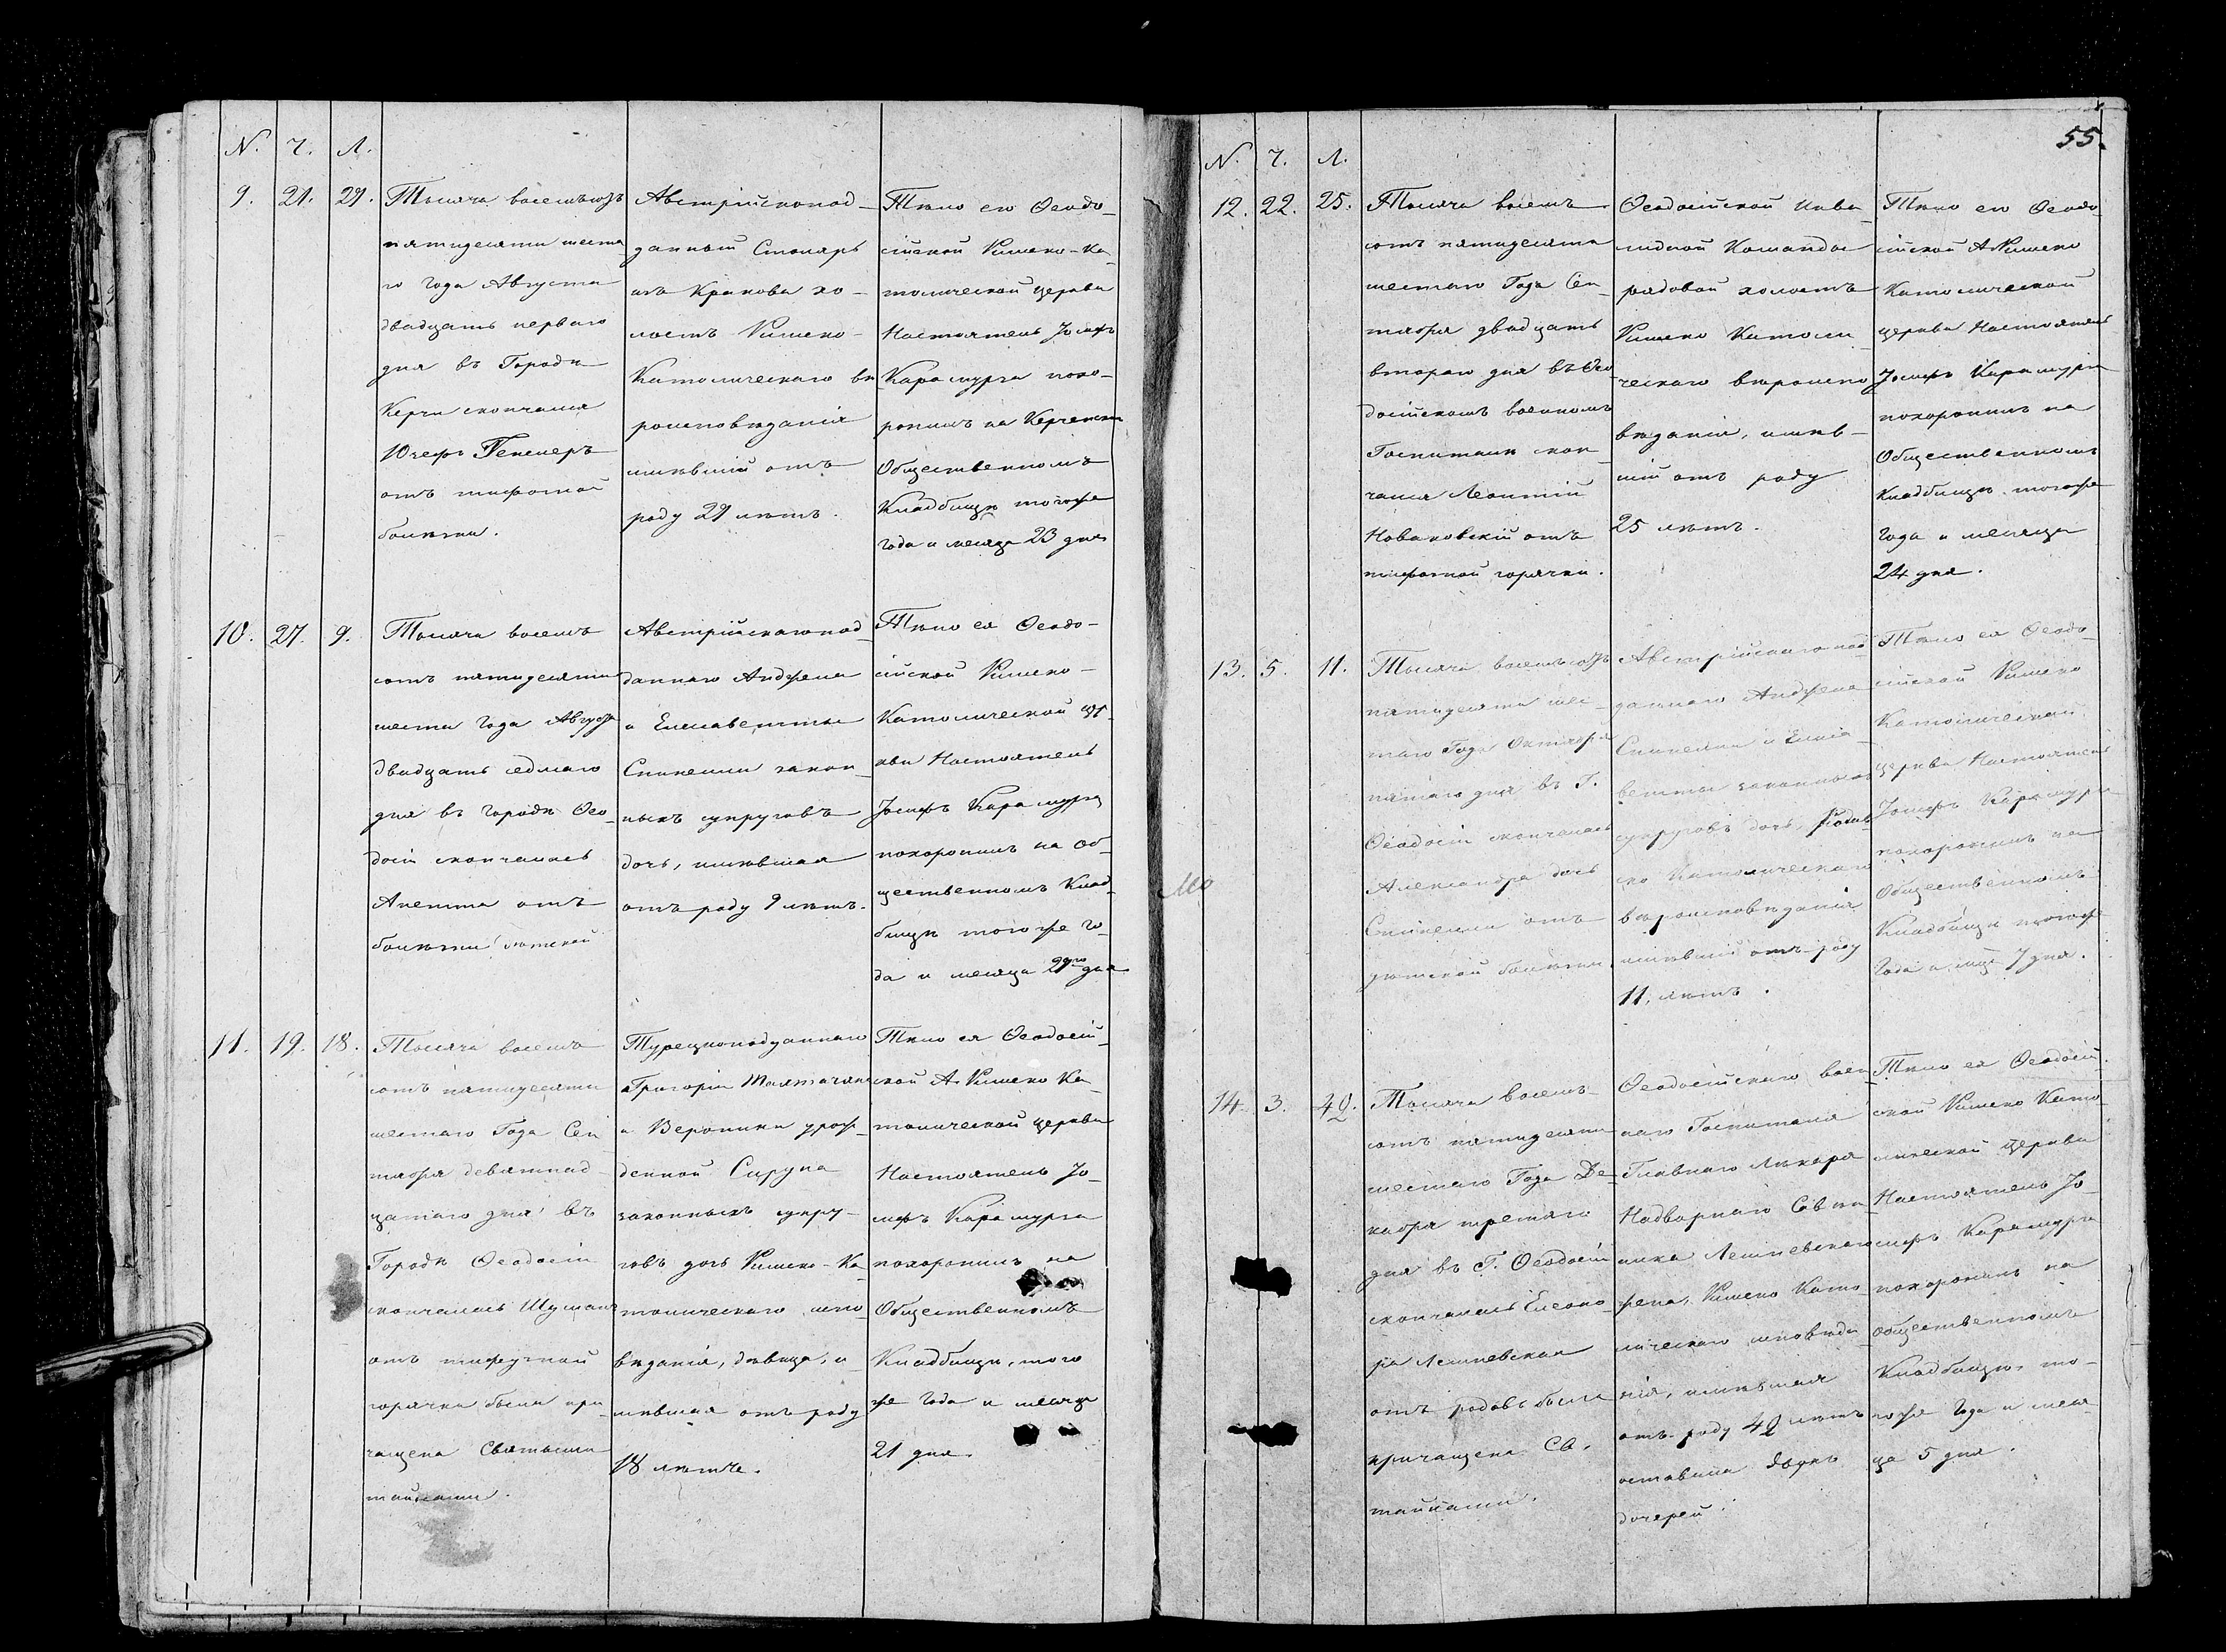 N. Ч. Л.
9. 21. 29.
Тысяча восемьсотъ
пятидесяти шеста
го года Августа
двадцать перваго
дня въ Городѣ
Керчи скончался
Юзефъ
отъ тифозной
болѣзни.
Австрійскопод-
данный Столяръ
изъ Кракова хо-
лостъ Римско-
Католическаго вѣ
роисповѣданія
имѣвшій отъ
роду 29 лѣтъ.
Тѣло его Ѳеодо-
сійской Римско-Ка-
толической церкви
Настоятель Іосифъ
Карамурза похо-
ронилъ на Керченскомъ
Общественномъ
Кладбищѣ тогоже
года и месяца 23 дня
10. 27. 9.
Тысяча восемъ
сотъ пятидесяти
шести года Августа
двадцать седмаго
дня въ городѣ Ѳео-
досіи скончалась
Анетта отъ
болѣзни
Австрійскаго под-
даннаго Анджела
и Елисаветты
Спинелли закон-
ныхъ супруговъ
дочь, имѣвшая
отъ роду 9 лѣтъ.
Тѣло ея Ѳеодо-
сійской Римско-
Католической цер-
кви Настоятель
Іосифъ Карамурза
похоронилъ на Об-
щественномъ Клад-
бищѣ того же го-
да и месяца 29го дня
11. 19. 18.
Тысяча восемъ
сотъ пятидесяти
шестаго Года Сен
тября девятнад-
цатаго дня въ
Городѣ Ѳеодосіи
скончалась Шушанъ
отъ тифузной
горячки была при-
чащена Святыми
тайнами.
Турецкоподданнаго
Григорія
и Вероники урож-
денной Сирупа
законныхъ супру-
говъ дочь Римско-Ка-
толическаго испо-
вѣданія, дѣвица, и-
мѣвшая отъ роду
18 лѣтъ.
Тѣло ея Ѳеодосій-
ской А. Римско Ка-
толической церкви
Настоятель Іо-
сифъ Карамурза
похоронилъ на
Общественномъ
Кладбищѣ, того
же Года и месяца
21 дня.
55.
N. Ч. Л.
12. 22. 25.
Тысяча восемъ
сотъ пятидесята
шестаго Года Сен-
тября двадцать
втораго дня въ Ѳео-
досійскомъ военномъ
Госпиталѣ скон-
чался Леонтій
Новаковскій отъ
тифозной горячки.
Ѳеодосійской Инва-
лидной Команды
рядовой холостъ
Римско Католи-
ческаго вѣроиспо
вѣданія, имѣв-
шій отъ роду
25 лѣтъ.
Тѣло его Ѳеодо-
сійской А Римско
Католической
церкви Настоятель
Іосифъ Карамурза
похоронилъ на
Общественномъ
Кладбищѣ тогоже
Года и месяца
24 дня.
13. 5. 11.
Тысяча восемьсотъ
пятидесяти шес-
таго Года Октября
пятаго дня въ Г.
Ѳеодосіи скончалась
Александра дочь
Спинелли отъ
дѣтской болѣзни.
Австрійскаго под
даннаго Анджела
Спинелли и Елиса-
ветты законныхъ
супруговъ дочь,
ко Католическаго
вѣроисповѣданія
имѣвшій отъ роду
11, лѣтъ.
Тѣло ея Ѳеодо-
сійской Римско
Католической
церкви Настоятель
Іосифъ Карамурза
похоронилъ на
Общественномъ
Кладбищѣ тогоже
Года и 7 дня.
14. 3. 42.
Тысяча восемъ-
сотъ пятидесяти
шестаго Года Де-
кабря третяго
дня въ Г. Ѳеодосіи
скончалась Елеоно-
ра Лешневская
отъ родовъ была
причащена Св.
тайнами.
Ѳеодосійскаго воен
наго Госпиталя
Главнаго Лекаря
Надворнаго Совѣт-
ника Лешневскаго
жена, Римско Като-
лическаго исповѣда-
нія, имѣвшая
отъ роду 42 лѣтъ
оставила двухъ
дочерей.
Тѣло ея Ѳеодосій-
ской Римско Като-
лической церкви
Настоятель Іо-
сифъ Карамурза
похоронилъ на
общественномъ
Кладбищѣ, то-
гоже Года и меся-
ца 5 дня.